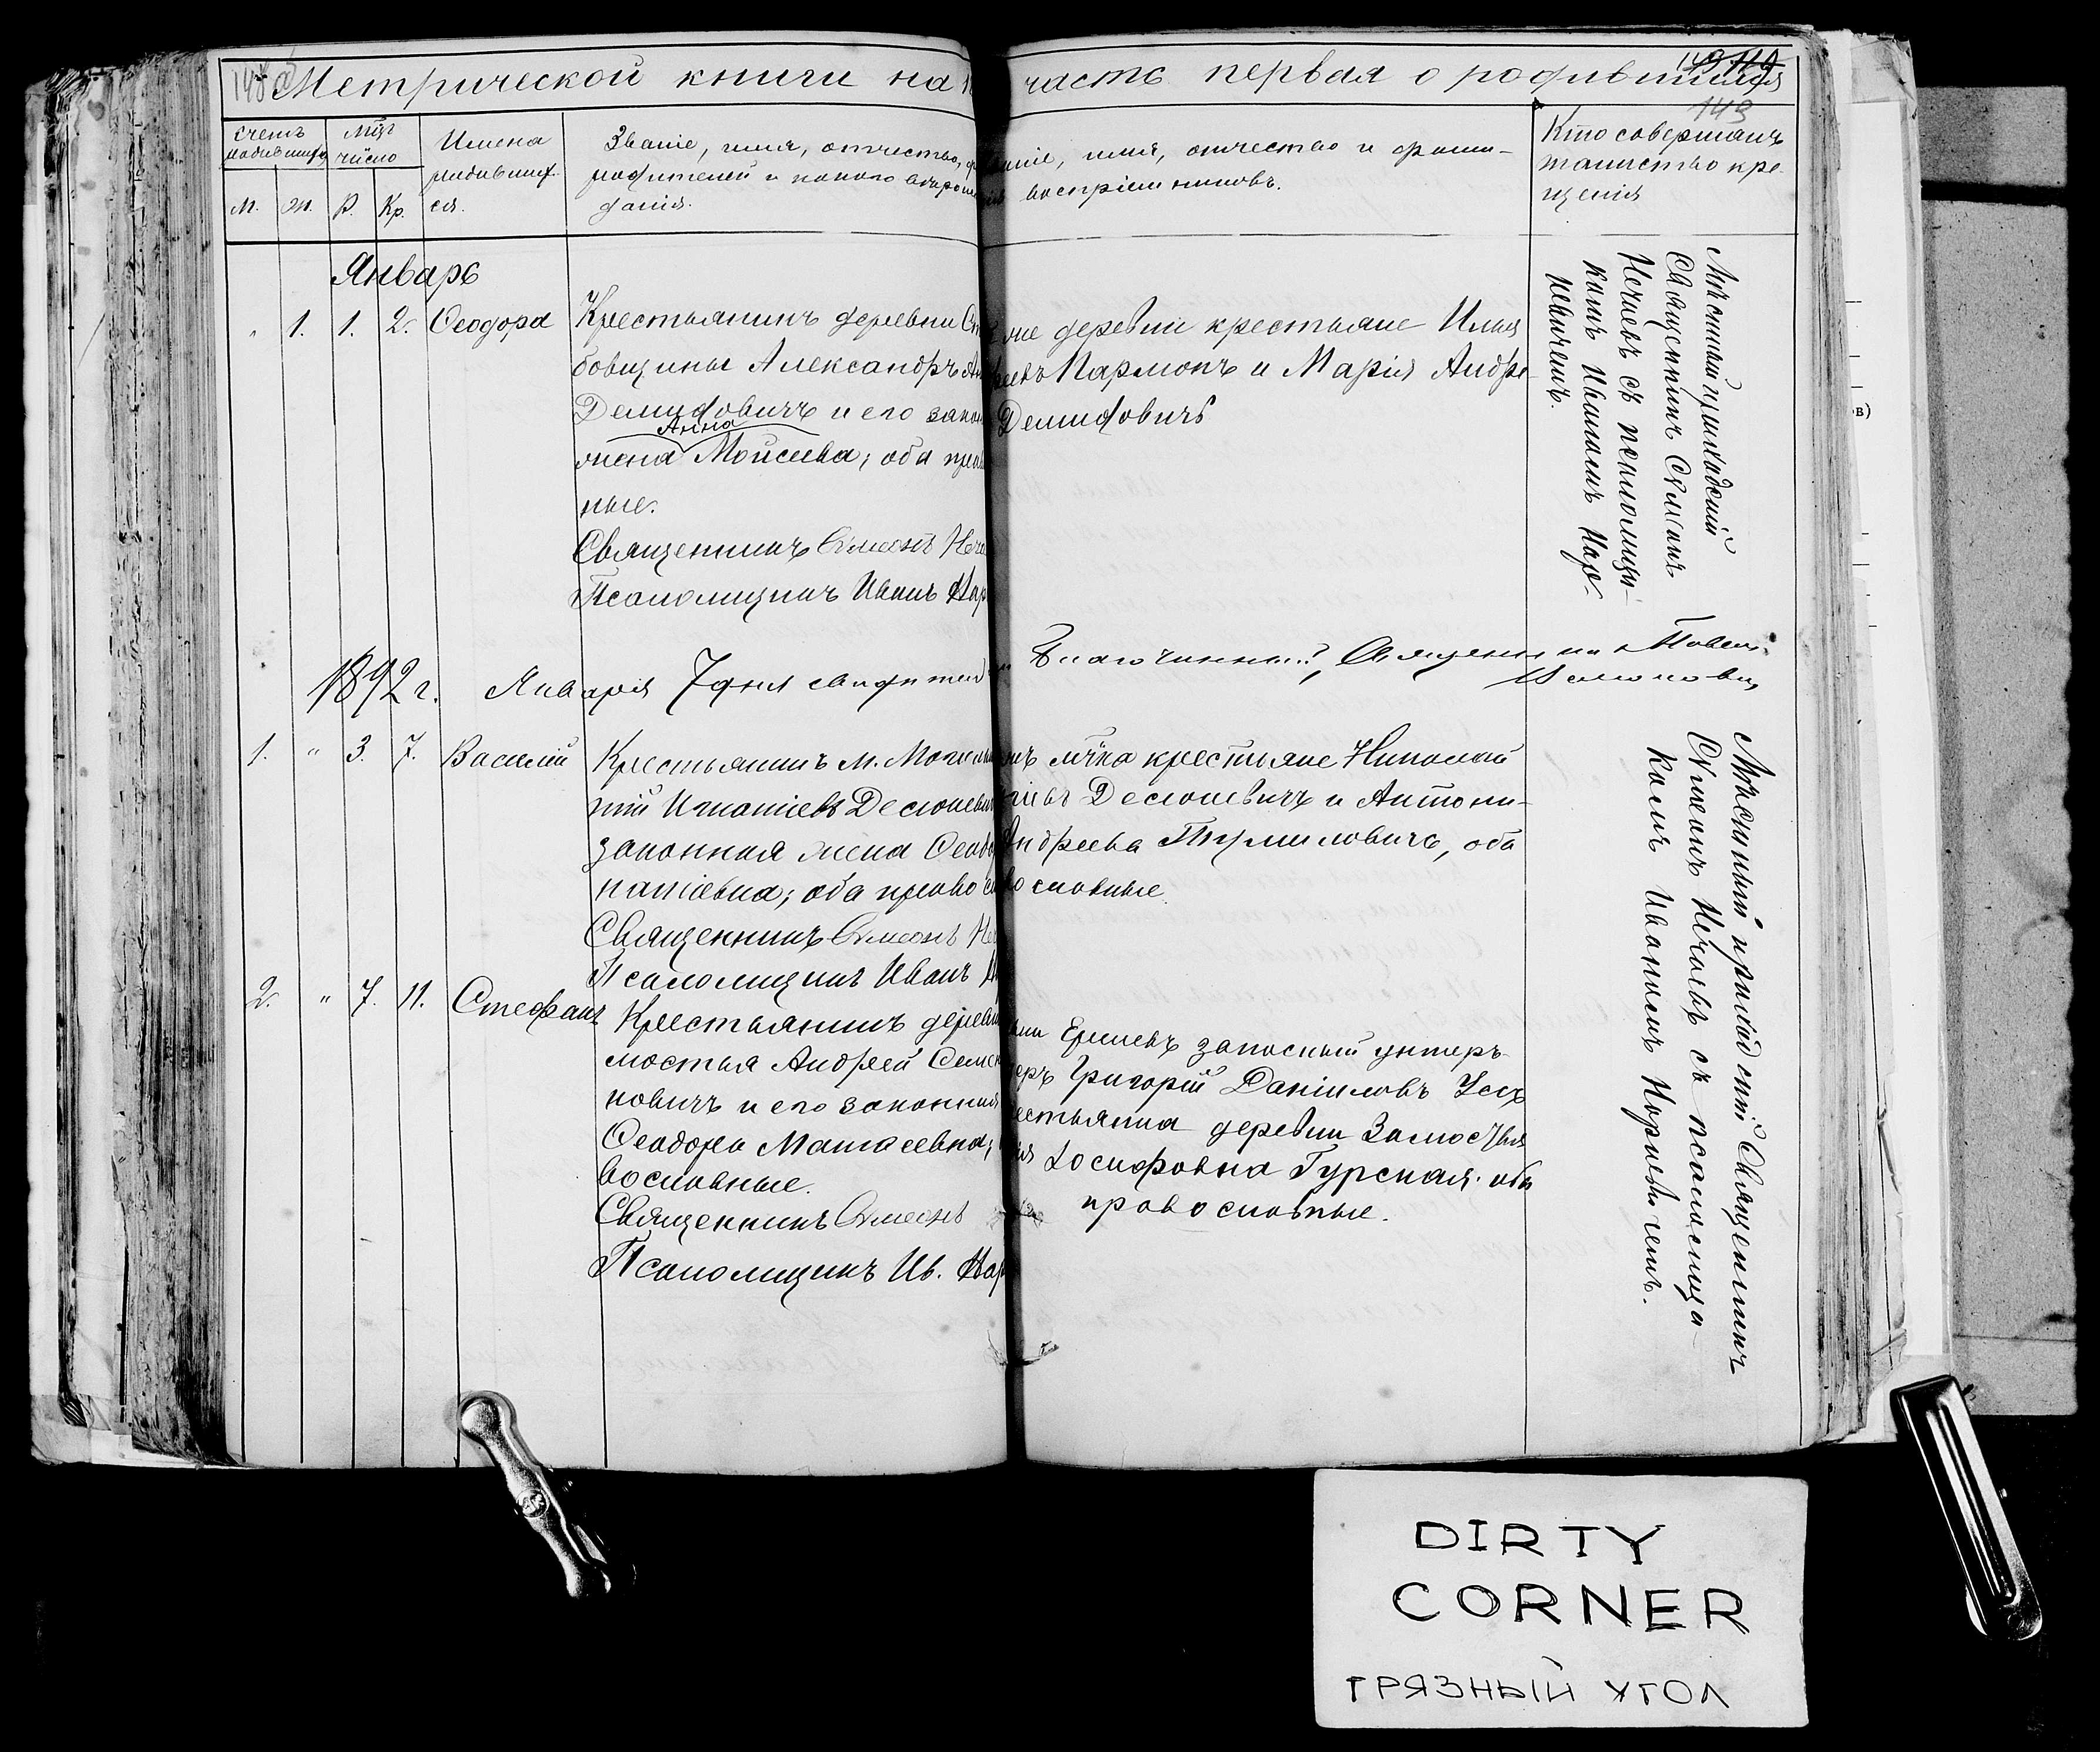 Метрической книги на 1
часть первая о родившихся
149
счетъ родившихся
мцъ число
Имена родившихся.
Званіе, имя, отчество, ф
родителей и какого вѣроисп
данія.
м. ж. Р. Кр.
Званіе, имя, отчество и фами-
лія воспріемниковъ.
Кто совершалъ
таинство кре-
щенія
Январь
" 1. 1. 2. Ѳеодора
Крестьянинъ деревни
бовщины Александръ Ан
Демидовичъ и его закон
Анна
жена Моисеева; оба прав
ные.
Священникъ Сѵмеонъ Неч
Псаломщикъ Иванъ Нар
же деревни крестьяне Илья
Пармонъ и Марія Андре
Демидовичъ
Мѣстный приходскій
Священникъ Сѵмеонъ
Нечаевъ съ псаломщи-
комъ Иваномъ Нар-
кевичемъ.
1892 г. Января 7 дня свидѣтел
Благочинный, Священникъ
1. " 3. 7. Василій
Крестьянинъ м. Могильн
тій Игнатіевъ Десюкевич
законная жена Ѳеодо
натіевна; оба правосл
Священникъ Сѵмеонъ Неч
Псаломщикъ Иванъ Н
мѣчка крестьяне Николай
Десюкевичъ и Антони-
Андреева Турмиловичъ, оба
вославные.
Мѣстный приходскій Священникъ
Сѵмеонъ Нечаевъ съ псаломщи-
комъ Иваномъ Наркевичемъ.
2. " 7. 11. Стефанъ
Крестьянинъ деревн
мостья Андрей Семен
новичъ и его законная
Ѳеодора Матѳеевна;
вославные.
Священникъ Сѵмеонъ
Псаломщикъ Ив. Нар
запасный унтеръ-
церъ Григорій Даніиловъ
естьянка деревни Замостья
Іосифовна Гурская. оба
православные.
DIRTY
CORNER
ГРЯЗНЫЙ УГОЛ